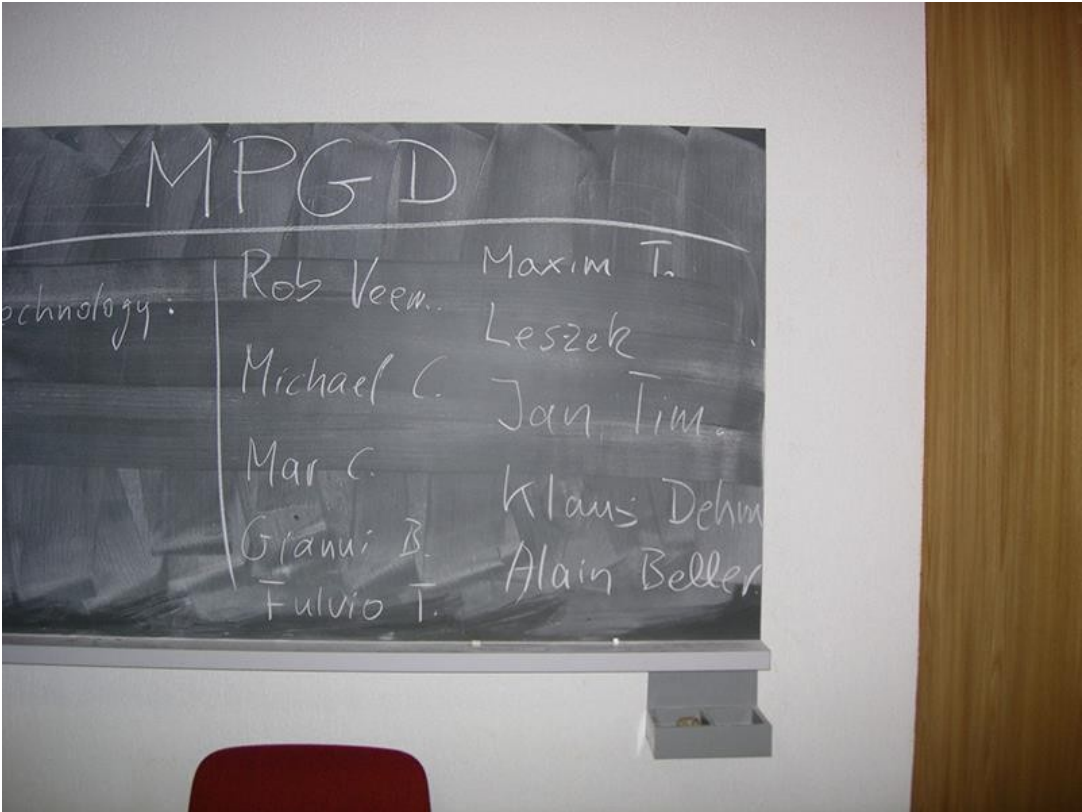 MPGD
echnology:
Rob Veen.
Michael C.
Mar C.
Gianni B.
Fulvio T.
Maxim T.
Leszek
Jan Tim.
Klaus Dehm
Alain Beller.